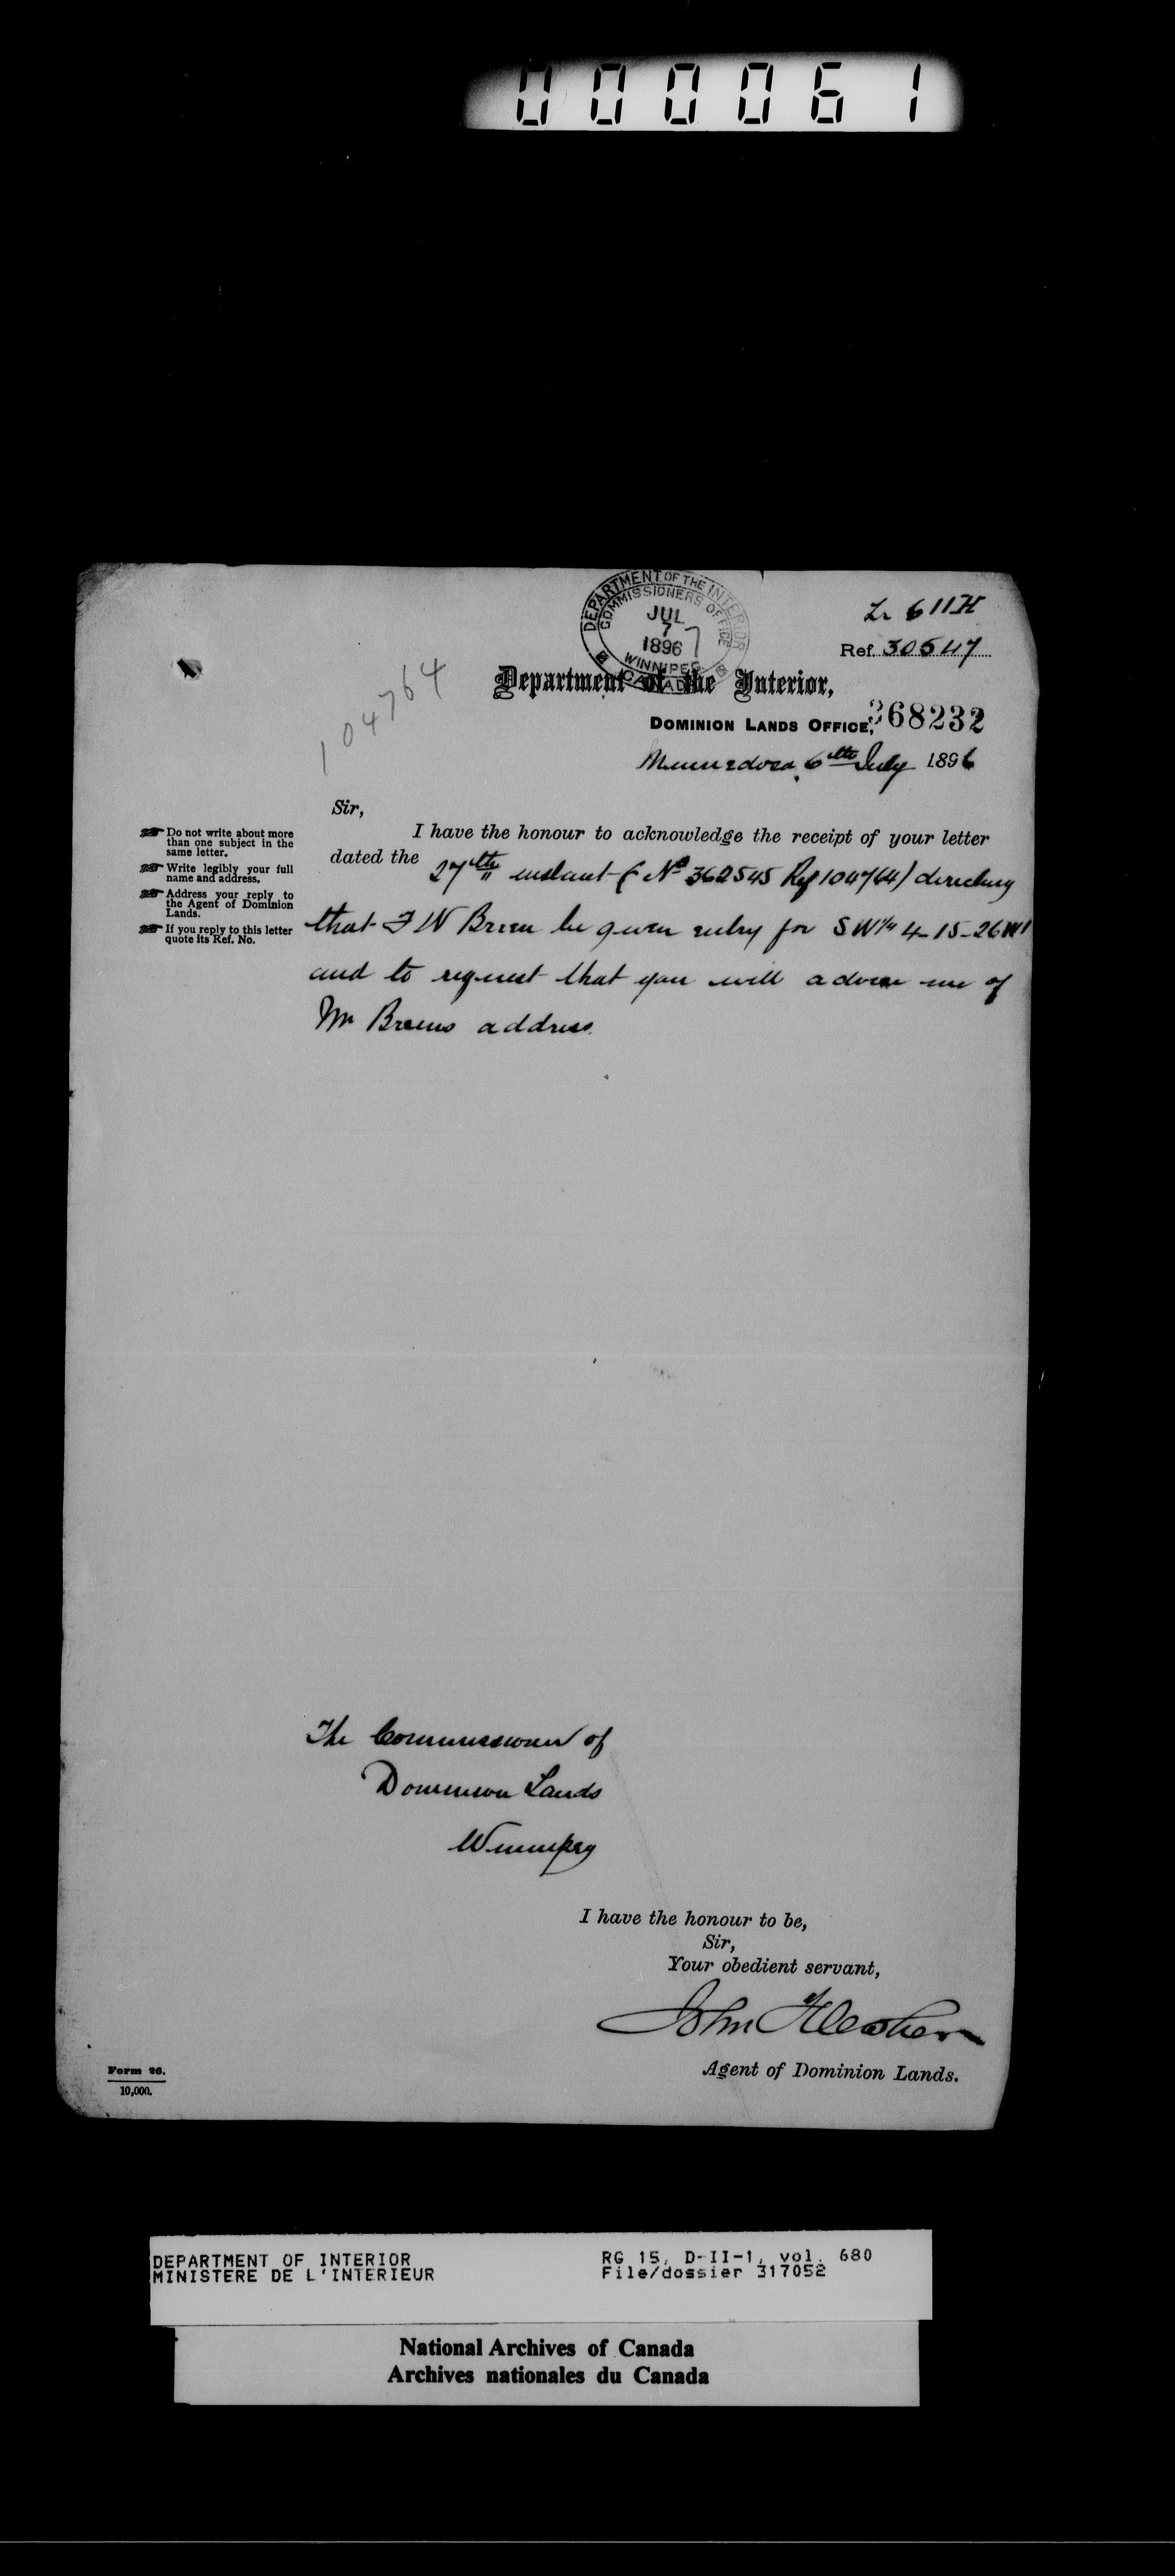 000061
DEPARTMENT OF THE INTERIOR
COMMISSIONERS OFFICE
JUL
7
1896
WINNIPEG
CANADA
7
Lr 611H
Ref. 30547
104764
Department of the Interior,
DOMINION LANDS OFFICE,
368232
Minnedosa, 6th July 1896
Sir,
I have the honour to acknowledge the receipt of your letter
dated the 27th instant (No 362545 Ref 104764) directing
that F W Breen be given entry for SW1/4 4-15-26W1
and to request that you will advise me of
Mr Breens address.
Do not write about more
than one subject in the
same letter.
Write legibly your full
name and address.
Address your reply to
the Agent of Dominion
Lands.
If you reply to this letter
quote its Ref. No.
The Commissioner of
Dominion Lands
Winnipeg
I have the honour to be,
Sir,
Your obedient servant,
John
Agent of Dominion Lands.
Form 26.
10,000.
DEPARTMENT OF INTERIOR
MINISTERE DE L'INTERIEUR
RG 15, D-II-1, vol. 680
File/dossier 317052
National Archives of Canada
Archives nationales du Canada